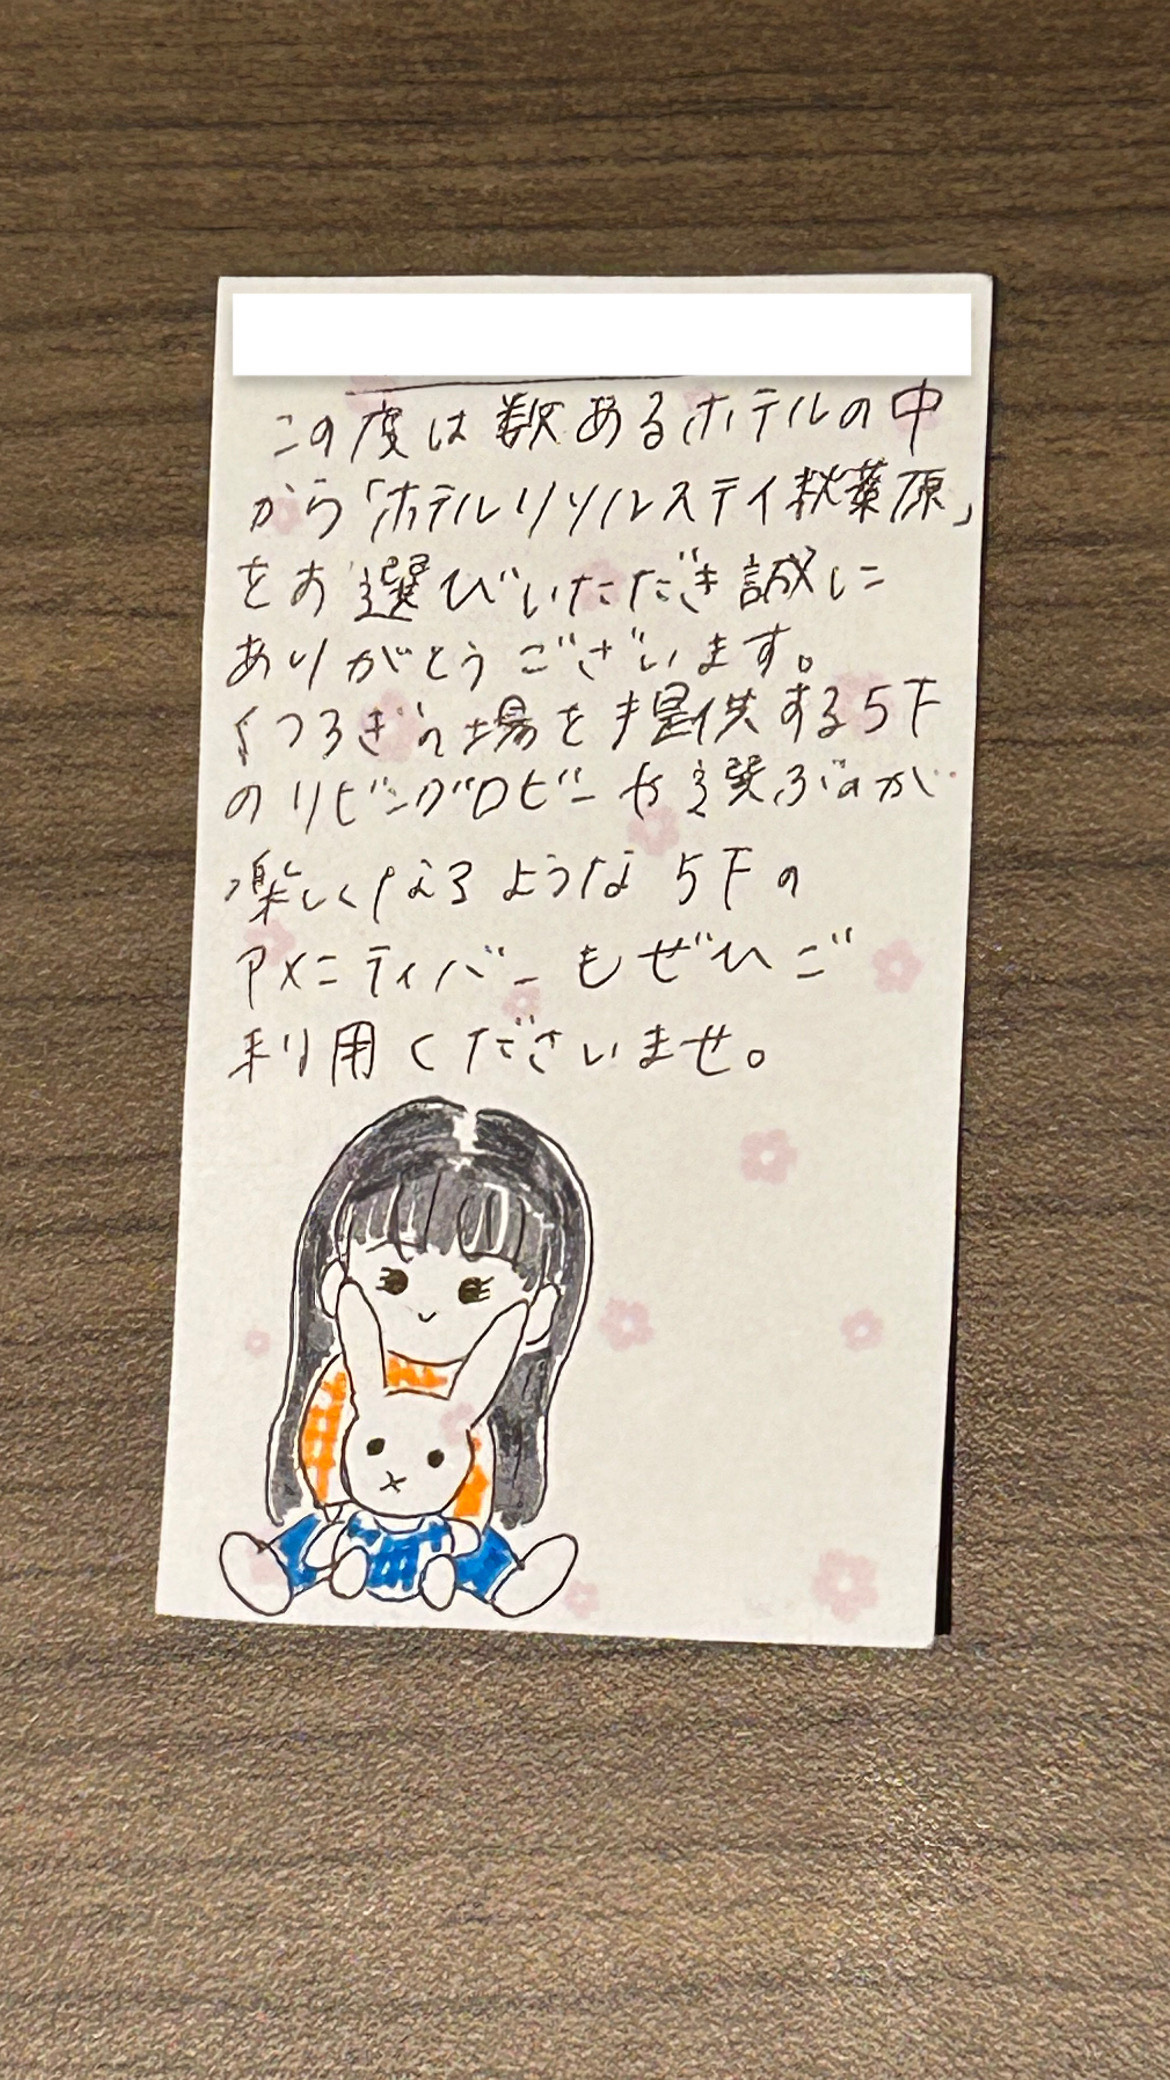 この度は数あるホテルの中
から「ホテルリソルステイ秋葉原」
をお選びいただき誠に
ありがとうございます。
くつろぎの場を提供する5F
のリビングロビーや選ぶのが
楽しくなるような5Fの
アメニティバーもぜひご
利用くださいませ。